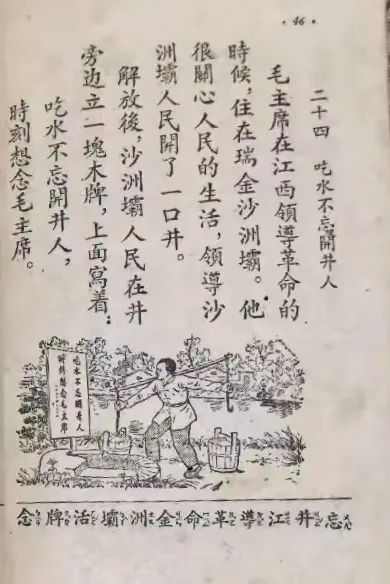 · 46 ·
二十四 吃水不忘開井人
毛主席在江西領導革命的
時候，住在瑞金沙洲壩。他
很關心人民的生活，領導沙
洲壩人民開了一口井。
解放後，沙洲壩人民在井
旁边立一塊木牌，上面寫着：
吃水不忘開井人，
時刻想念毛主席。
吃水不忘開井人
時刻想念毛主席
忘井江導革命金洲壩活牌念